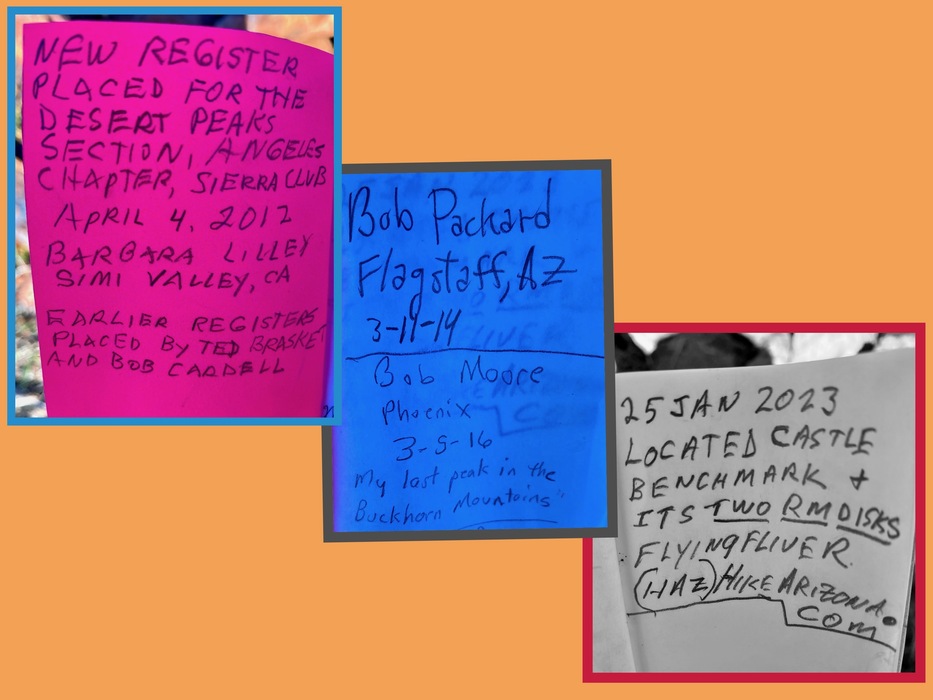 NEW REGISTER
PLACED FOR THE
DESERT PEAKS
SECTION, ANGELES
CHAPTER, SIERRA CLUB
APRIL 4, 2012
BARBARA LILLEY
SIMI VALLEY, CA
EARLIER REGISTERS
PLACED BY TED BRASKET
AND BOB CARDELL
Bob Packard
Flagstaff, AZ
3-11-14
Bob Moore
Phoenix
3-5-16
My last peak in the
Buckhorn Mountains"
25 JAN 2023
LOCATED CASTLE
BENCHMARK +
ITS TWO RM DISKS
FLYINGFLIVER
(HAZ) HIKEARIZONA.
COM